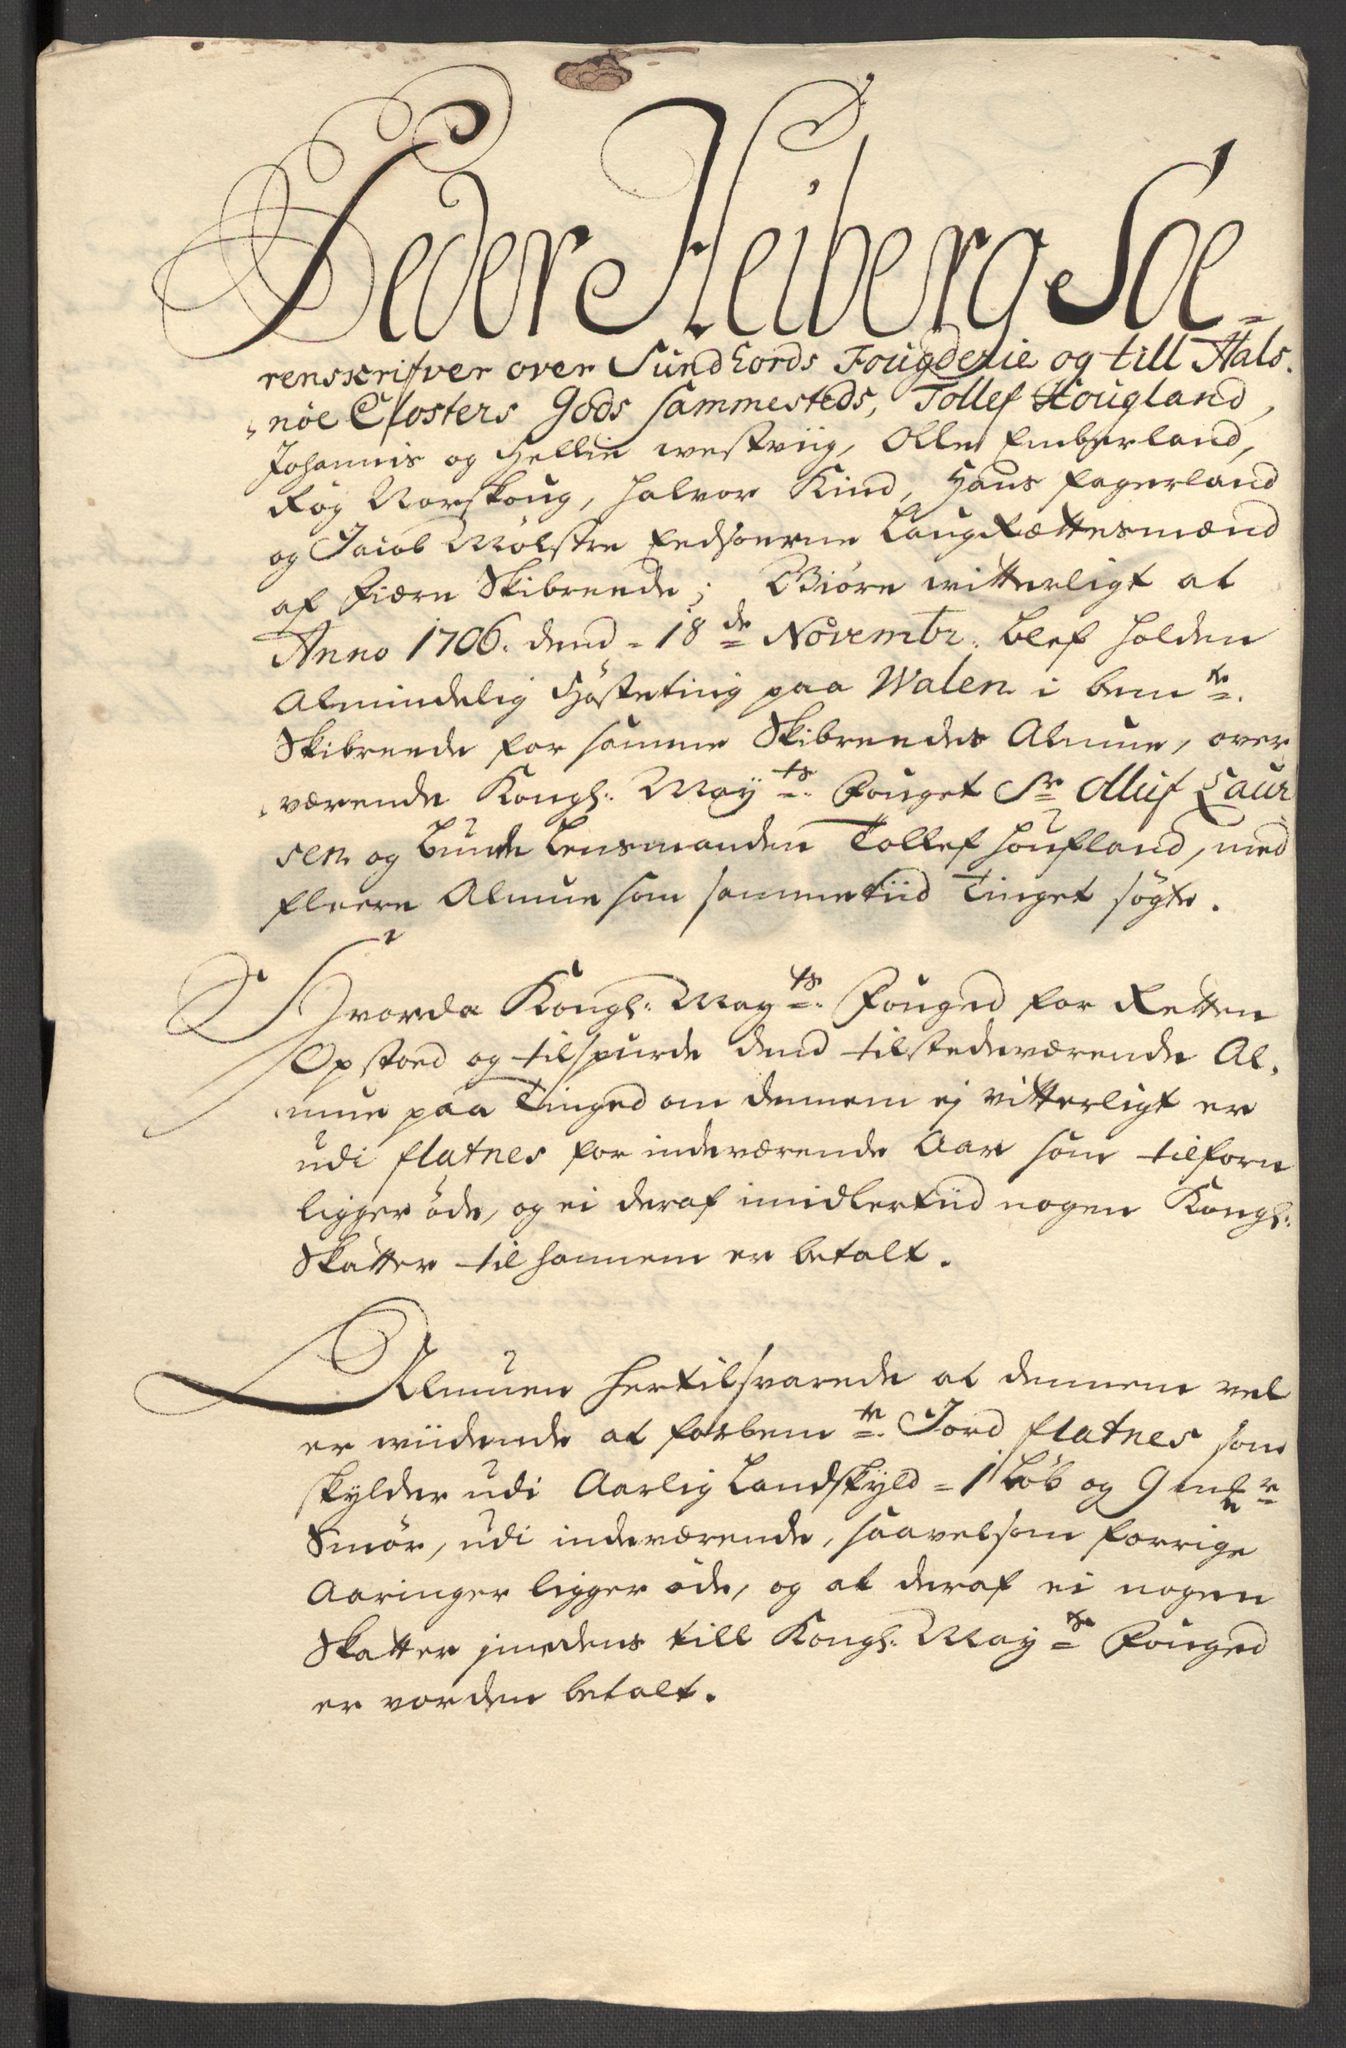 Peder Heiberg Soe-
renskrifver over Sundhords Fougderie og till Hals-
nøe Closters Gods sammesteds, Tollef Hougland,
Johannis og Hellie westviig, Olle Emberland,
Røg Norskoug, Halvor Kind, Hans Fagerland
og Jacob Mølstre Eedsvorne LaugRettesmænd
af Fiære Skibreede; Giøre witterligt at
Anno 1706. dend 18de Novembr. blef holden
Almindelig Høsteting paa Walen i bemte
Skibreede for samme Skibreedes Almue, over
værende Kongl: Mayts Fouget Sr Oluf Laur
sen og Bunde Lensmanden Tollef Houfland, med
fleere Almue som sammetiid Tinget søgte.
Hvorda Kongl: Mayts Fouged for Retten
Opstoed og tilspurde dend tilstedeværende Al-
mue paa Tinged om dennem ej vitterligt er
udi flatnes for indeværende Aar som tilforn
ligger øde, og ei deraf imidlertiid nogen Kongl:
Skatter til hannem er betalt.
Almuen hertilsvarede at dennem vel
er wiidende at forbemte Jord flatnes som
skylder udi Aarlig Landskyld = 1 Løb og 9 mkr
Smør, udi indeværende, saavelsom forrige
Aaringer ligger øde, og at deraf ei nogen
Skatter jmedens till Kongl: Mayts Fouged
er vorden betalt.